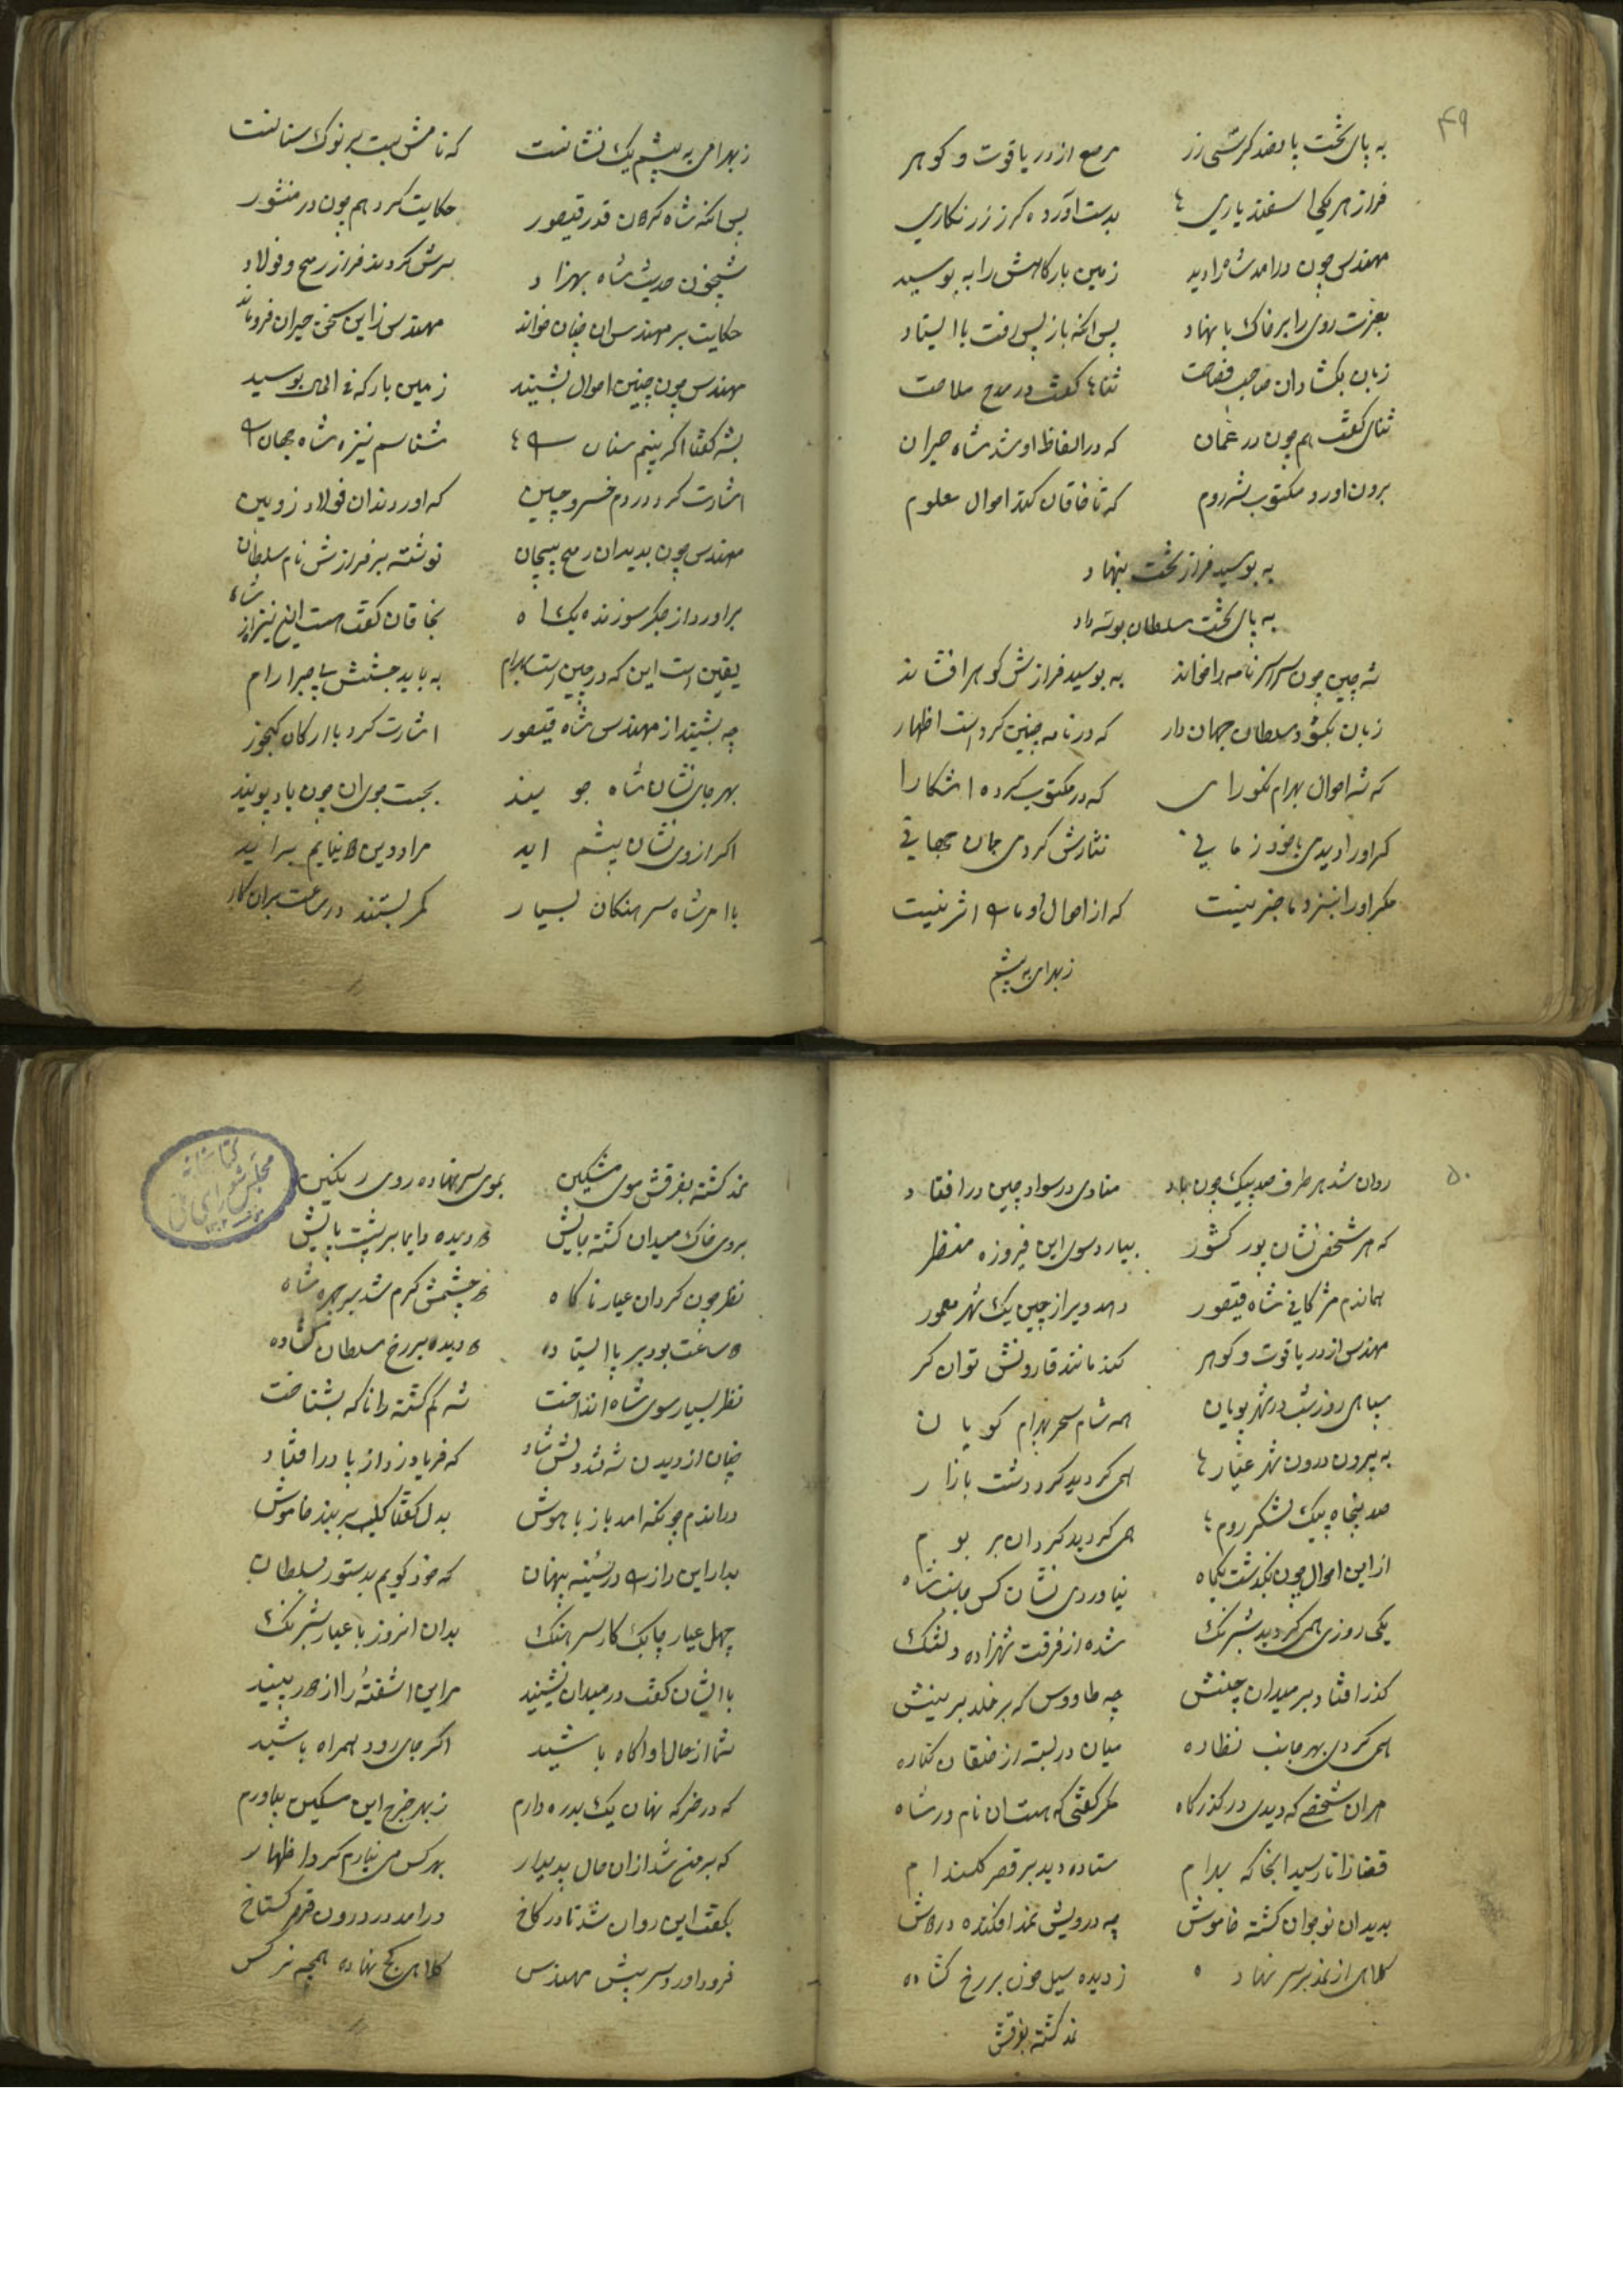 ۴۹
به پای تخت پانصد کرسی زر مرصع از در یاقوت و کوهر
فراز هر یکی اسفندیاری بدست آورده کرز زرنکاری
مهندس چون درامد شاه را دید زمین بارکاهش را به بوسید
بعزت روی را بر خاک بنهاد پس انکه باز پس رفت با ایستاد
زبان بکشاد ان صاحب فصاحت ثناها کفت در مدح ملاحت
ثنای کفت هم چون در عمان که در الفاظ او شد شاه حیران
برون اورد مکتوب شه روم که تا خاقان کند احوال معلوم
به بوسید فراز تخت بنهاد
به پای تخت سلطان بوسه داد
شه چین چون سراسر نامه را خواند به بوسید فرازش کوهر افشاند
زبان بکشود سلطان جهان دار که در نامه چنین کرد است اظهار
که شه احوال بهرام نکورای که در مکتوب کرده اشکارا
کر او را دیدی با خود زمانی نثارش کردمی جان جهانی
مکر او را بنزد ما خبر نیست که از احوال او ما را اثر نیست
زبهرامی به پیشم
زبهرامی به پیشم یک نشانست که نامش ثبت بر نوک سنانست
پس انکه شاه کرد ان قدر قیصور حکایت کرد هم چون در منثور
شبیخون حدیث شاه بهزاد سرش کردند فراز رمح و فولاد
حکایت بر مهندس ان چنان خواند مهندس زاین سخن حیران فروماند
مهندس چون چنین احوال بشنید زمین بارکه فی الحال بوسید
بشه کفتا اکر بینم سنان را شناسم نیزه شاه جهان را
اشارت کرد در دم خسرو چین که اوردند ان فولاد زوبین
مهندس چون بدید ان رمح پیچان نوشته بر فرازش نام سلطان
براورد از جکر سوزنده یک اه بخاقان کفت هست این نیزه از شاه
یقین است این که در چین است بهرام به باید جستنش بی صبر ارام
چه بشنید از مهندس شاه قیصور اشارت کرد با ارکان کیجور
بهر جای نشان شاه جویند بجست جوی ان چون باد پویند
اکر از وی نشان پیشم اید مراد دین دنیایم براید
با امر شاه سرهنکان بسیار کمر بستند در ساعت بران کار
۵۰
روان شد هر طرف صد پیک چون باد منادی در سواد چین درافتاد
که هر شخص نشان پور کشور بیارد سوی این فیروزه منظر
همان دم مژکانی شاه قیصور دهد ویرا ز چین یک شهر معمور
مهندس از در یاقوت و کوهر کند مانند قارونش توان کر
سپاهی روز شب در شهر پویان همه شام سحر بهرام کویان
به بیرون درون شهر عیارها همی کردید کرد دشت بازار
صد پنجاه پیک لشکر روم همی کردید کردان بر بوم
از این احوال چون بکذشت یکماه نیاوردی نشان کس جانب شاه
یکی روزی همی کردید شبرنک شده از فرقت شهزاده دلتنک
کذر افتاد بر میدان چنینش چه طاووس که بر خلد برینش
همی کردی بهر جانب نظاره میان در بسته از خلقان کناره
هران شخصی که دیدی در کذرکاه مکر کفتی که هست ان نامور شاه
قضا را تا رسید انجا که بهرام ستاده دید بر قصر کلندام
بدید ان نوجوان کشته خاموش چه درویش نمد افکنده در دوش
کلاهی از نمد بر سر نهاده ز دیده سیل خون بر رخ کشاده
نمد کشته بفرقش
نمد کشته بفرقش موی مشکین بموی سر نهاده روی رنکین
بروی خاک میدان کشته پایش دو دیده دایما بر پشت پایش
نظر چون کرد ان عیار ناکاه دو چشمش کرم شد بر چهره شاه
دو ساعت بود بر پا ایستاده دو دیده بر رخ سلطان کشاده
نظر بسیار سوی شاه انداخت شه کم کشته را انکه بشناخت
چنان از دیدن شه شد دلش شاد که فریاد زد از پا درافتاد
دران دم چونکه امد باز با هوش بدل کفتا که بربند خاموش
بدار این راز را در سینه پنهان که خود کویم بدستور سلطان
چهل عیار چابک کار سرهنک بدان انروز با عیار شبرنک
با ایشان کفت در میدان نشینید مر این اشفته را از دور ببینید
شما از حال او اکاه باشید اکر جای رود همراه باشید
که در خرکه نهان یک بدره دارم ز بهر خرج این مسکین بیاورم
که بر من شد از ان حال پدیدار بهر کس می نیارم کرد اظهار
بکفت این روان شد تا در کاخ درامد در درون قصر کستاخ
فرود اورد سر پیش مهندس کلاهی کج نهاده همچه نرکس
کتابخانه مجلس شورای ملی